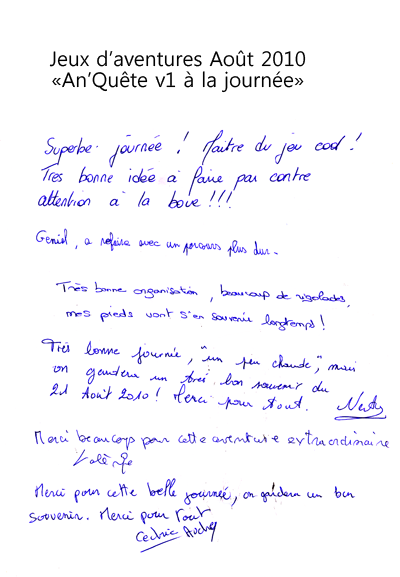 Jeux d'aventures Août 2010
«An'Quête v1 à la journée»
Superbe journée ! Maitre du jeu cool !
Très bonne idée à faire par contre
attention à la boue !!!
Génial, a refaire avec un parcours plus dur.
Très bonne organisation, beaucoup de rigolades,
mes pieds vont s'en souvenir longtemps !
Très bonne journée, "un peu chaude", mais
on gardera un très bon souvenir du
21 Août 2010 ! Merci pour tout.
Merci beaucoup pour cette aventure extraordinaire
Merci pour cette belle journée, on gardera un bon
souvenir. Merci pour tout
Cédric Audrey